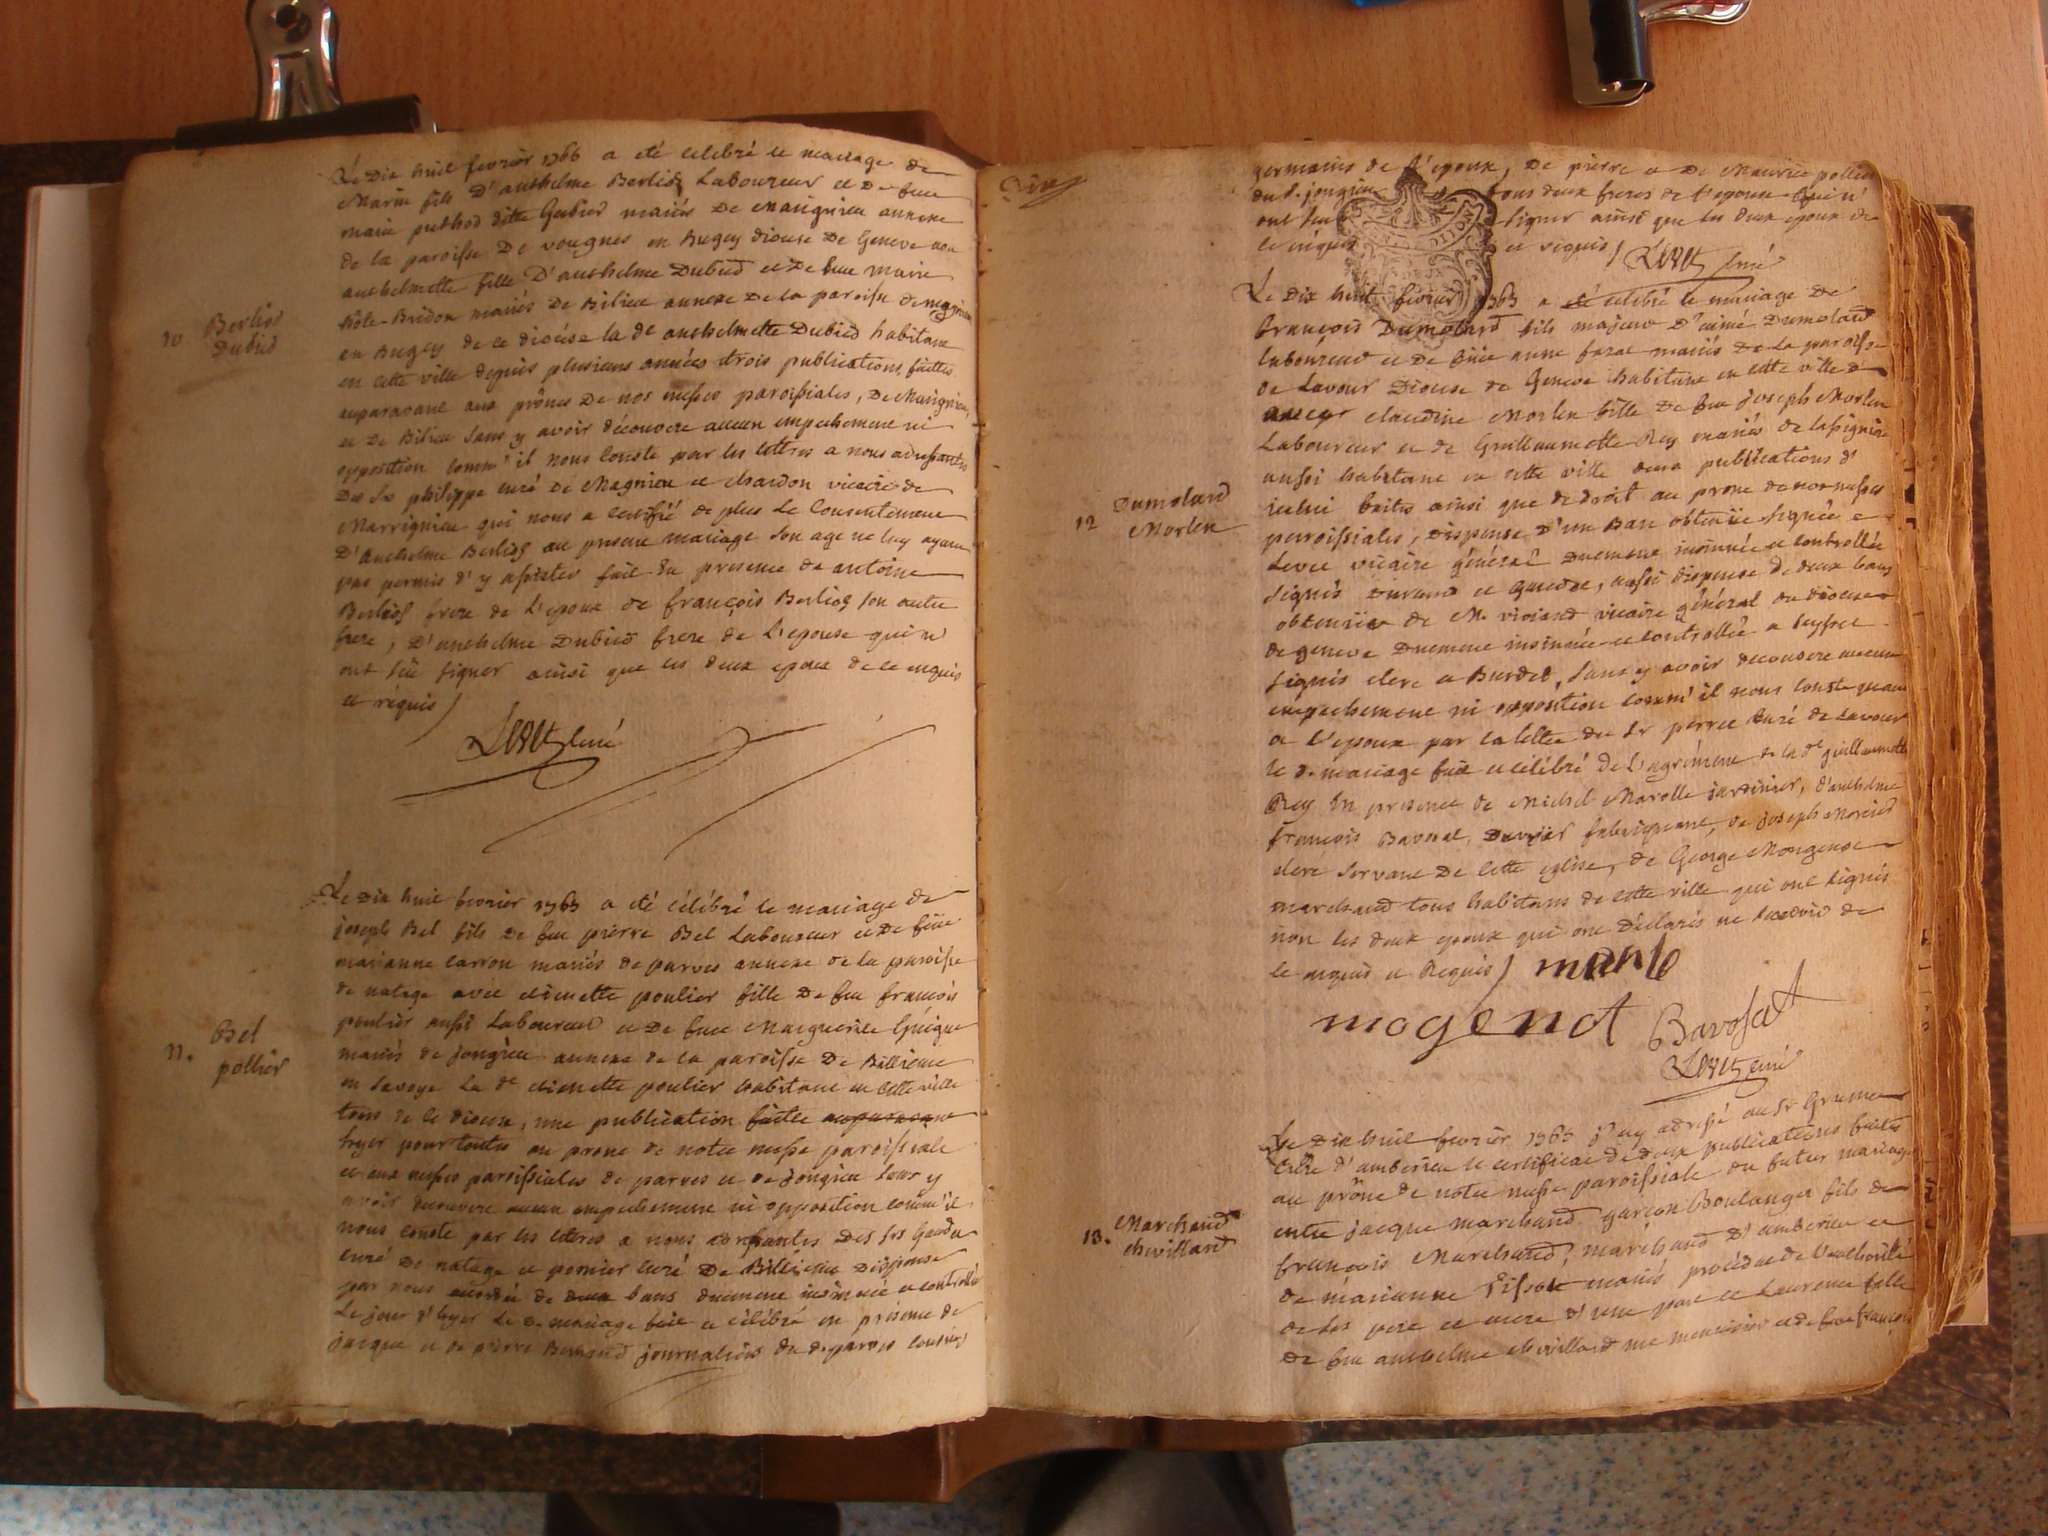 10 Berlioz
Dubied
Le dix huit fevrier 1766 a eté celebré le mariage de
Marin fils D'anthelme Berlioz Laboureur et De feue
marie puthod ditte mariés De Marignieu annexe
de la paroisse De vougnes en Bugey diocese De Geneve avec
anthelmette fille D'anthelme Dubied et De feue marie
mariés De Bilieu annexe De la paroisse de magnieu
en Bugey de ce diocése la dte anthelmette Dubied habitant
en cette ville depuis plusieurs années trois publications faittes
auparavant aux prônes De nos messes paroissiales, De Marignieu,
et De Bilieu sans y avoir découvert aucun empechement ni
opposition comm'il nous conste par les lettres a nous adressantes
Des Srs philippe curé De Magnieu et chardon vicaire de
Marrignieu qui nous a certifié de plus Le Consentement
D'anthelme Berlioz au present mariage son age ne luy ayant
pas permis d'y assister fait En presence de antoine
Berlioz frere de L'epoux de françois Berlioz son autre
frere, D'anthelme Dubied frere de L'epouse qui n'
ont sçu signer ainsi que les deux epoux de ce enquis
et réquis
curé
11. Bel
pollier
Le Dix huit fevrier 1765 a eté célébré le mariage de
joseph Bel fils De feu pierre Bel Laboureur et De feüe
marianne carron mariés de parves annexe de la paroisse
de natage avec clemette poulier fille De feu françois
poulier aussi Laboureur et De feue Marguerite
mariés de jongieu annexe de la paroisse De Billieme
en savoye La dte poulier habitant en cette ville
tous de ce diocese, une publication faitte auparavant
hyer pour toutes au prone de notre messe paroissiale
et aux messes paroissiales de parves et de jongieu sans y
avoir decouvert aucun empechement ni opposition comm'il
nous conste par les lettres a nous adressantes Des Srs
curé De natage et curé De Billieme Dispense
par nous accordée de deux bans duement insinuée et controllée
Le jour d'hyer Le d. mariage fait et célébré en présence de
jacque et de pierre Bertrand journaliers du d. parves cousins
germains de L'epoux, De pierre et De Maurice pollier
du d. jongieu tous deux freres de l'epouse qui n'
ont sçu signer ainsi que les deux epoux de
ce enquis et requis
curé
12 Dumolard
Morlin
Le Dix huit fevrier 1765 a eté celebré le mariage De
françois Dumolard fils majeur D'aimé Dumolard
laboureur et De feüe anne mariés De La paroisse
de Lavour Diocese de Geneve habitant en cette ville
avec claudine Morlin fille De feu joseph Morlin
Laboureur et de Guillaumette Rey mariés de
aussi habitant en cette ville deux publications d'
icelui faites ainsi que de droit au prone de nos messes
paroissiales, dispense D'un Ban obtenüe signée
vicaire général Duement insinuée et controllée
signés Durand et, aussi dispense de deux bans
obtenüe de M. vicaire général du diocese
de geneve Duement insinuée et controllée a seyssel
signés clerc et Burdet, sans y avoir decouvert aucun
empechement ni opposition comm'il nous conste quant
a l'epoux par la lettre du Sr perret curé de Lavour
le d. mariage fait et célébré De L'agrément de la dte guillaumette
Rey En presence de Michel Marolle jardinier, d'anthelme
françois Bavosat, fabriquant, de joseph Mercier
clerc servant De cette eglise, de George Mongenot
marchand tous habitans de cette ville qui ont signés
non les deux epoux qui ont déclarés ne sçavoir de
ce enquis et Requis
mogenot Bavosat
curé
13. Marchand
chevillard
Le Dix huit fevrier 1765 j'ay adressé au Sr
Curé d'amberieu le certificat de deux publications faittes
au prône de notre messe paroissiale du futur mariage
entre jacque marchand garçon Boulanger fils de
françois Marchand, marchand d'amberieu et
de marianne mariés procédant de l'authorité
de ses pere et mere d'une part et Laurence fille
de feu anthelme chevillard me menuisier et de feue françoise